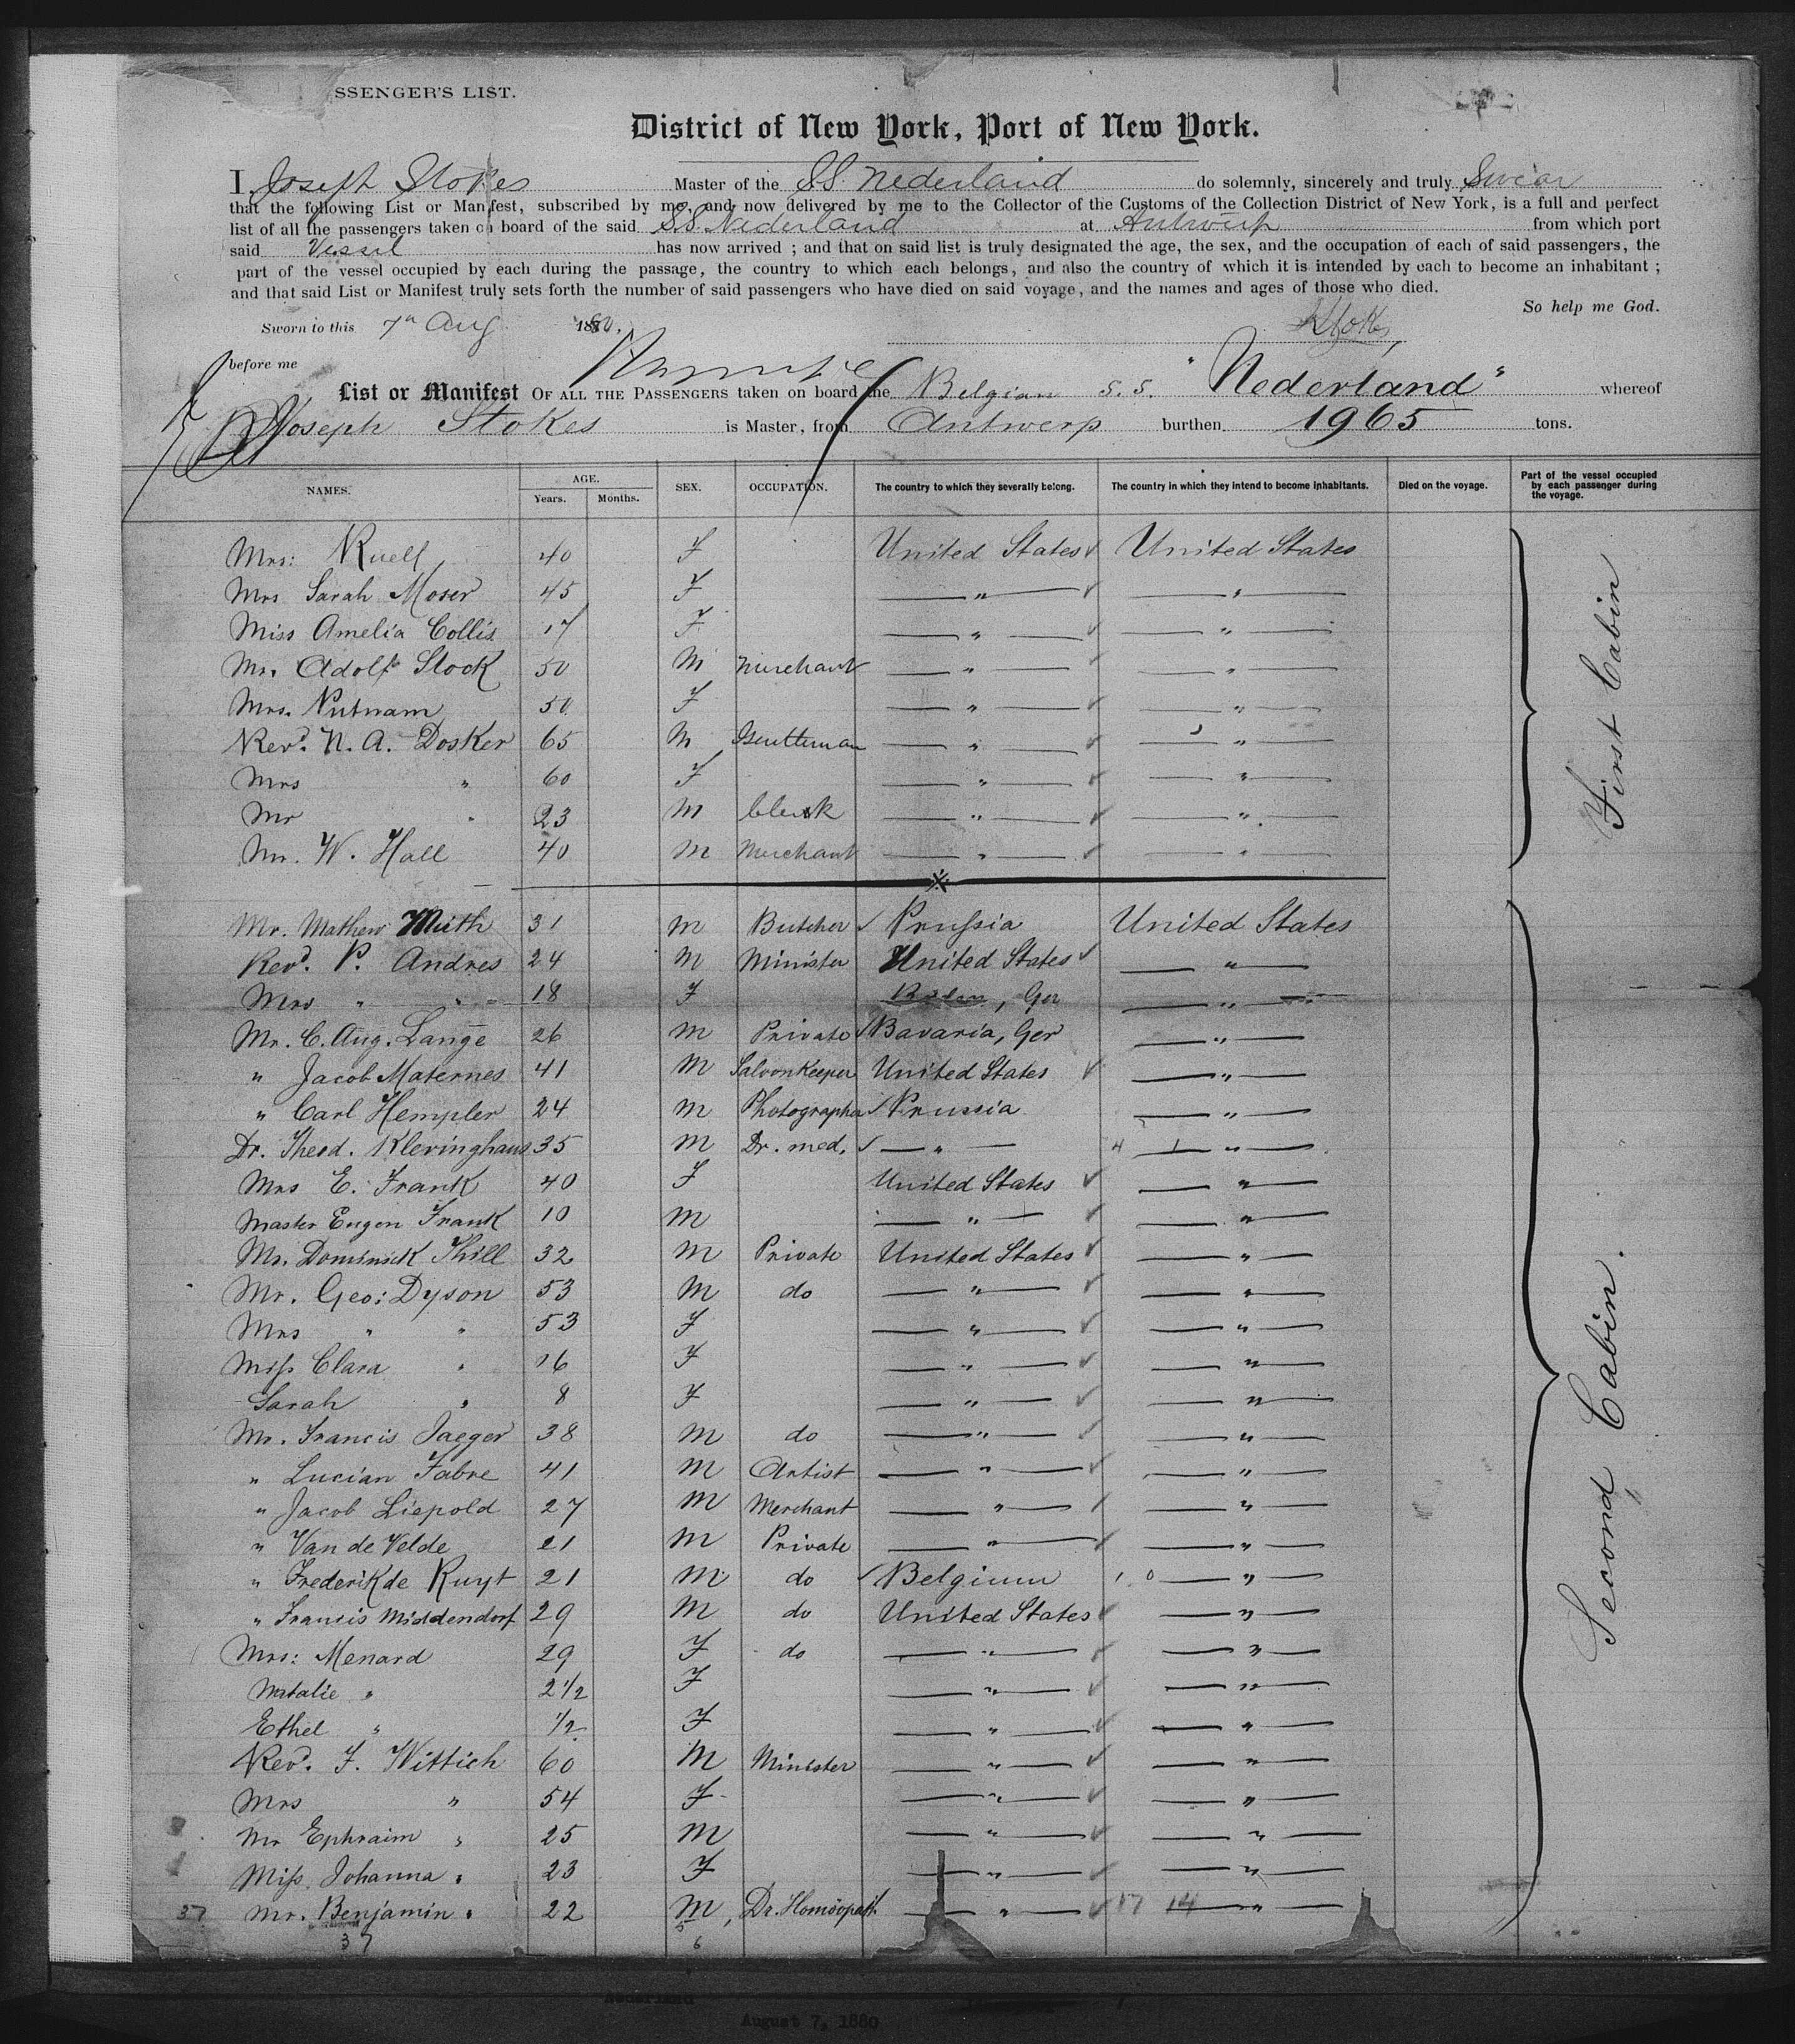 SSENGER'S LIST.
District of New York, Port of New York.
I, Joseph Stokes Master of the S.S. Nederland do solemnly, sincerely and truly Swear
that the following List or Manifest, subscribed by me, and now delivered by me to the Collector of the Customs of the Collection District of New York, is a full and perfect
list of all the passengers taken on board of the said S.S. Nederland at Antwerp from which port
said Vessel has now arrived; and that on said list is truly designated the age, the sex, and the occupation of each of said passengers, the
part of the vessel occupied by each during the passage, the country to which each belongs, and also the country of which it is intended by each to become an inhabitant;
and that said List or Manifest truly sets forth the number of said passengers who have died on said voyage, and the names and ages of those who died.
So help me God.
Sworn to this 7th Aug 1880. JStokes
before me
List or Manifest OF ALL THE PASSENGERS taken on board the Belgian S.S. "Nederland" whereof
Joseph Stokes is Master, from Antwerp burthen 1965 tons.
NAMES. AGE. Years. Months. SEX. OCCUPATION. The country to which they severally belong. The country in which they intend to become inhabitants. Died on the voyage. Part of the vessel occupied by each passenger during the voyage.
Mrs: Ruell 40 F United States United States
Mrs Sarah Moser 45 F " "
Miss Amelia Collis 17 F " "
Mr. Adolf Stock 50 M Merchant " "
Mrs. Putnam 50 F " "
Revd. N. A. Dosker 65 M Gentleman " "
Mrs " 60 F " "
Mr " 23 M Clerk " "
Mr. W. Hall 40 M Merchant " "
First Cabin
Mr. Mathew Muth 31 M Butcher Prussia United States
Revd. P. Andres 24 M Minister United States "
Mrs " " 18 F , Ger "
Mr. C. Aug. Lange 26 M Private Bavaria, Ger "
" Jacob Maternes 41 M Saloonkeeper United States "
" Carl Hempler 24 M Photographer Prussia "
Dr. Theod. Klevinghaus 35 M Dr. med. " "
Mrs E. Frank 40 F United States "
Master Eugen Frank 10 M " "
Mr. Dominick Thill 32 M Private United States "
Mr. Geo: Dyson 53 M do " "
Mrs " " 53 F " "
Miss Clara " 16 F " "
Sarah " 8 F " "
Mr. Francis Jaeger 38 M do " "
" Lucian Fabre 41 M Artist " "
" Jacob Liepold 27 M Merchant " "
" Van de Velde 21 M Private " "
" Frederik de Ruyt 21 M do Belgium "
" Francis Middendorf 29 M do United States "
Mrs: Menard 29 F do " "
Natalie " 2 1/2 F " "
Ethel " 1/2 F " "
Revd. F. Wittich 60 M Minister " "
Mrs " 54 F " "
Mr Ephraim " 25 M " "
Miss Johanna " 23 F " "
37 Mr. Benjamin " 22 M Dr. Homöopath " 17 14 "
Second Cabin.
37 6
Nederland
August 7, 1880